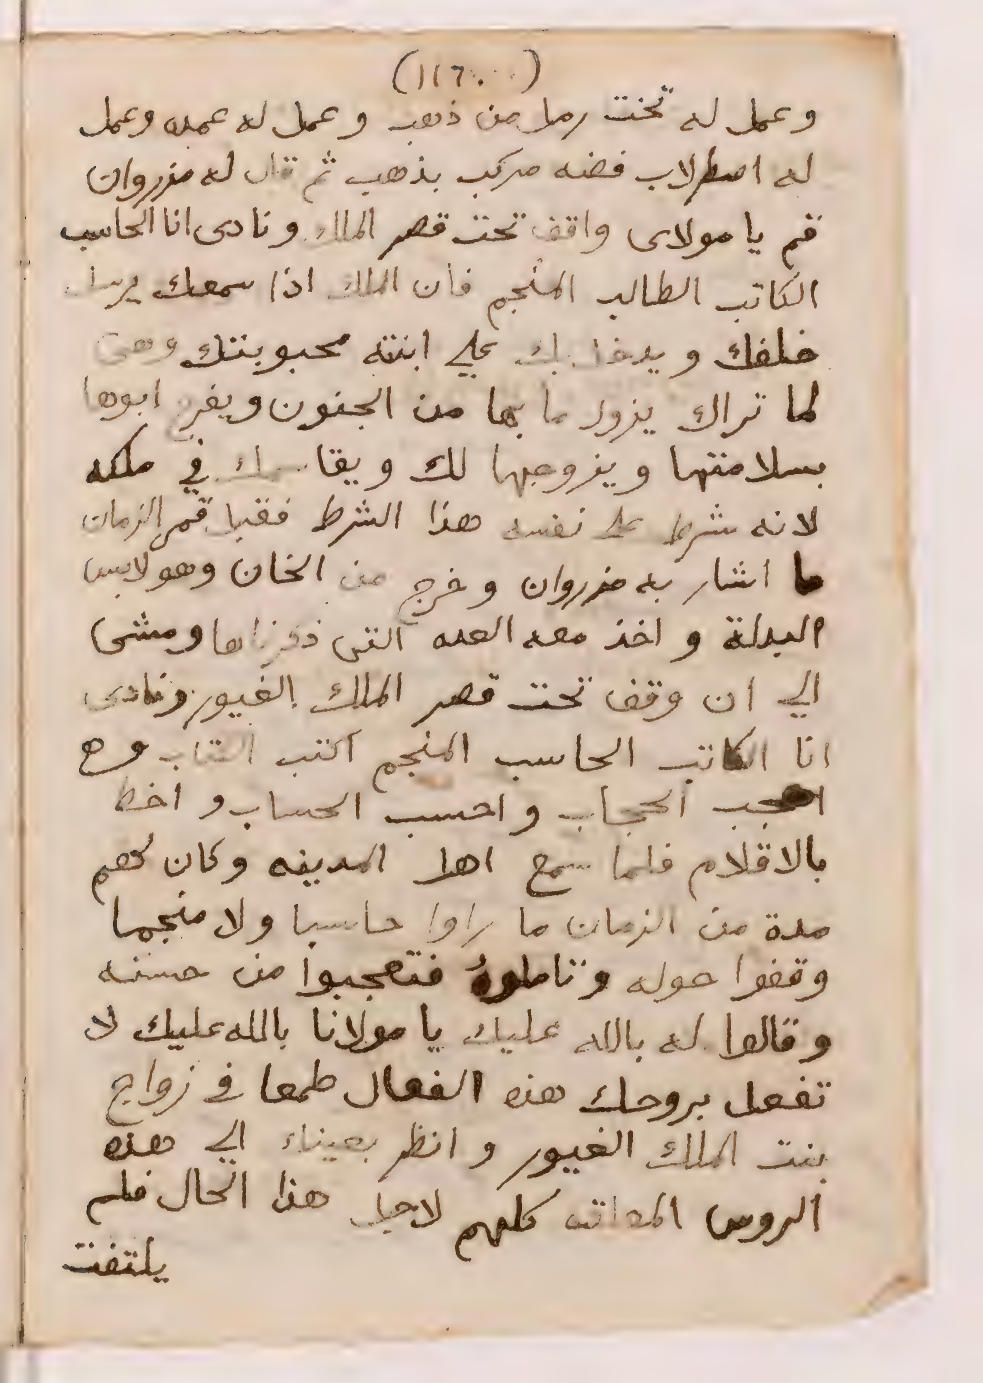 (١١٦٠)
وعمل له تخت رمل من ذهب وعمل له عمده وعمل
له اصطرلاب فضه مركب بذهب ثم قال له مزروان
قم يا مولاى واقف تحت قصر الملك ونادى انا الحاسب
الكاتب الطالب المنجم فان الملك اذا سمعك يرسل
خلفك ويدخل بك علي ابنته محبوبتك وهى
لما تراك يزول ما بها من الجنون ويفرح ابوها
بسلامتها ويزوجها لك ويقاسمك في ملكه
لانه شرط على نفسه هذا الشرط فقبل قمر الزمان
ما اشار به مزروان وخرج من الخان وهو لابس
البدلة واخذ معه العده التى ذكرناها ومشى
الي ان وقف تحت قصر الملك الغيور ونادى
انا الكاتب الحاسب المنجم اكتب الكتاب
الحجاب واحسب الحساب و اخط
بالاقلام فلما سمع اهل المدينه وكان لهم
مدة من الزمان ما راوا حاسبا ولا منجما
وقفوا حوله وتاملوهُ فتعجبوا من حسنه
وقالوا له بالله عليك يا مولانا بالله عليك لا
تفعل بروحك هذه الفعال طمعا في زواج
بنت الملك الغيور و انظر بعيناك الي هذه
الروس المعلقه كلهم لاجل هذا الحال فلم
يلتفت